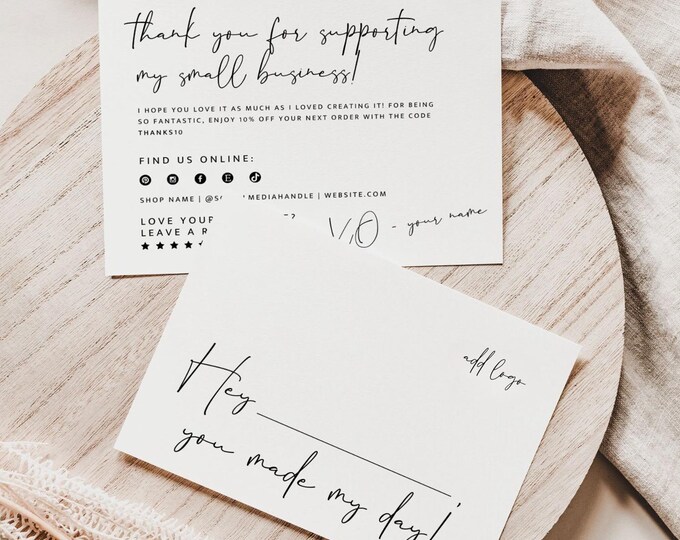 thank you for supporting
my small business!
I HOPE YOU LOVE IT AS MUCH AS I LOVED CREATING IT! FOR BEING
SO FANTASTIC, ENJOY 10% OFF YOUR NEXT ORDER WITH THE CODE
THANKS10
FIND US ONLINE:
SHOP NAME | MEDIAHANDLE | WEBSITE.COM
LOVE YOUR
LEAVE A
X,O - your name
add logo
Hey
you made my day!